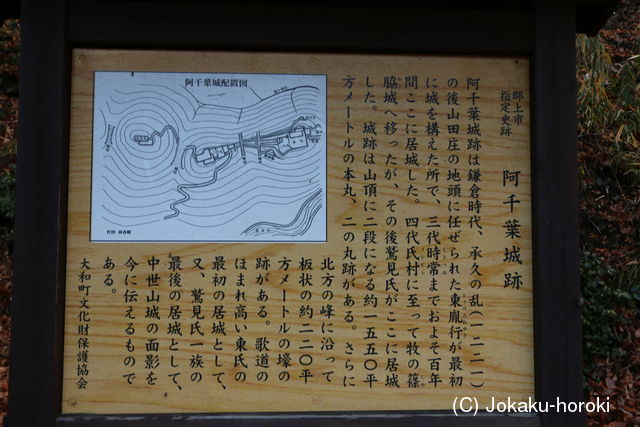 郡上市
指定史跡
阿千葉城跡
阿千葉城跡は鎌倉時代、承久の乱(一二二一)
の後山田庄の地頭に任ぜられた東胤行が最初
に城を構えた所で、三代時常までおよそ百年
間ここに居城した。四代氏村に至って牧の篠
脇城へ移ったが、その後鷲見氏がここに居城
した。城跡は山頂に二段になる約一五五〇平
方メートルの本丸、二の丸跡がある。さらに
北方の峰に沿って
板状の約二二〇平
方メートルの壕の
跡がある。歌道の
ほまれ高い東氏の
最初の居城として、
又、鷲見氏一族の
最後の居城として、
中世山城の面影を
今に伝えるもので
ある。
大和町文化財保護協会
阿千葉城配置図
(C) Jokaku-horoki